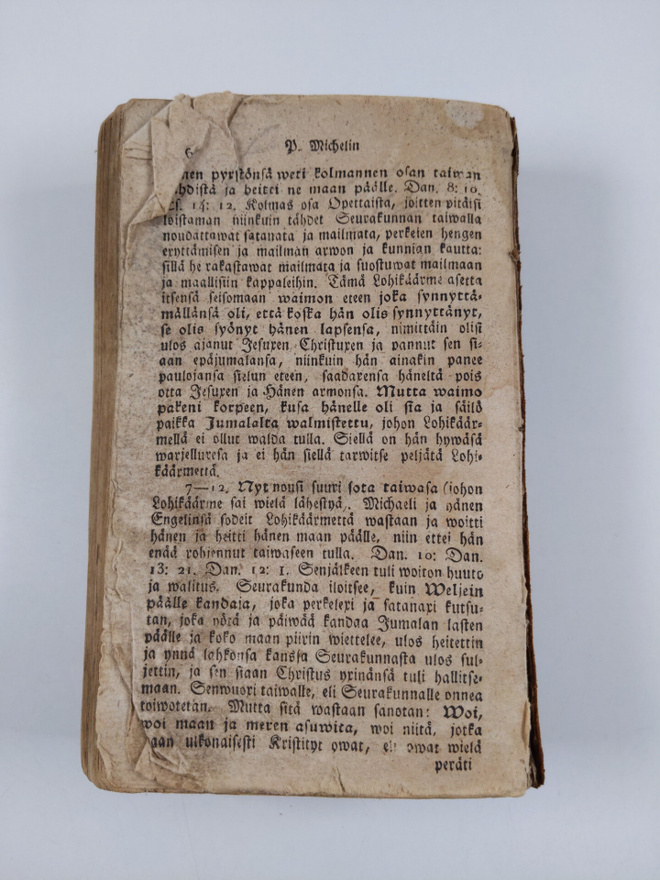 6 P. Michelin
nen pyrstönsä weti kolmannen osan taiwan
hdistä ja heitti ne maan päälle. Dan. 8: 10.
Es. 14: 12. Kolmas osa Opettaista, joitten pitäisi
loistaman niinkuin tähdet Seurakunnan taiwalla
noudattawat satanata ja mailmata, perkelen hengen
eryttämisen ja mailman arwon ja kunnian kautta:
sillä he rakastawat mailmata ja suostuwat mailmaan
ja maallisiin kappaleihin. Tämä Lohikäärme asetta
itsensä seisomaan waimon eteen joka synnyttä-
mällänsä oli, että koska hän olis synnyttänyt,
se olis syönyt hänen lapsensa, nimittäin olisi
ulos ajanut Jesuxen Christuxen ja pannut sen si-
aan epäjumalansa, niinkuin hän ainakin panee
paulojansa sielun eteen, saadaxensa häneltä pois
otta Jesuxen ja Hänen armonsa. Mutta waimo
pakeni korpeen, kusa hänelle oli sia ja säilö
paikka Jumalalta walmistettu, johon Lohikäär-
mellä ei ollut walda tulla. Siellä on hän hywäsä
warjelluxesa ja ei hän siellä tarwitse peljätä Lohi-
käärmettä.
7—12. Nyt nousi suuri sota taiwasa (johon
Lohikäärme sai wielä lähestyä). Michaeli ja hänen
Engelinsä sodeit Lohikäärmettä wastaan ja woitti
hänen ja heitti hänen maan päälle, niin ettei hän
enää rohjennut taiwaseen tulla. Dan. 10: Dan.
13: 21. Dan. 12: 1. Senjälkeen tuli woiton huuto
ja walitus. Seurakunda iloitsee, kuin Weljein
päälle kandaja, joka perkelexi ja satanaxi kutsu-
tan, joka yötä ja päiwää kandaa Jumalan lasten
päälle ja koko maan piirin wiettelee, ulos heitettin
ja ynnä lahkonsa kansja Seurakunnasta ulos sul-
jettin, ja sen siaan Christus yxinänsä tuli hallitse-
maan. Senwuoxi taiwalle, eli Seurakunnalle onnea
toiwotetan. Mutta sitä wastaan sanotan: Woi,
woi maan ja meren asuwita, woi niitä, jotka
waan ulkonaisesti Kristityt owat, eli owat wielä
peräti